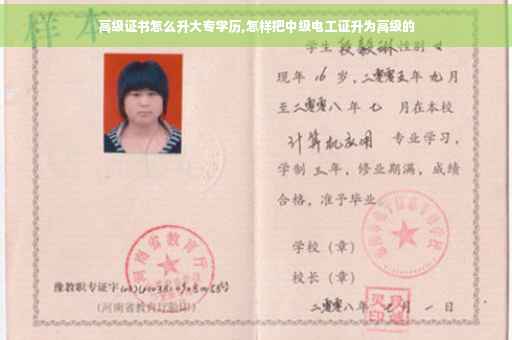 高级证书怎么升大专学历,怎样把中级电工证升为高级的
样本
学生 段毅琳 性别 女
现年 16 岁,二零零五年 九月
至二零零八年 七 月在本校
计算机应用 专业学习,
学制 三 年,修业期满,成绩
合格,准予毕业
学校(章)
校长(章)
二零零八年 月 一 日
河南省教育厅
豫教职专证字
(河南省教育厅验印)